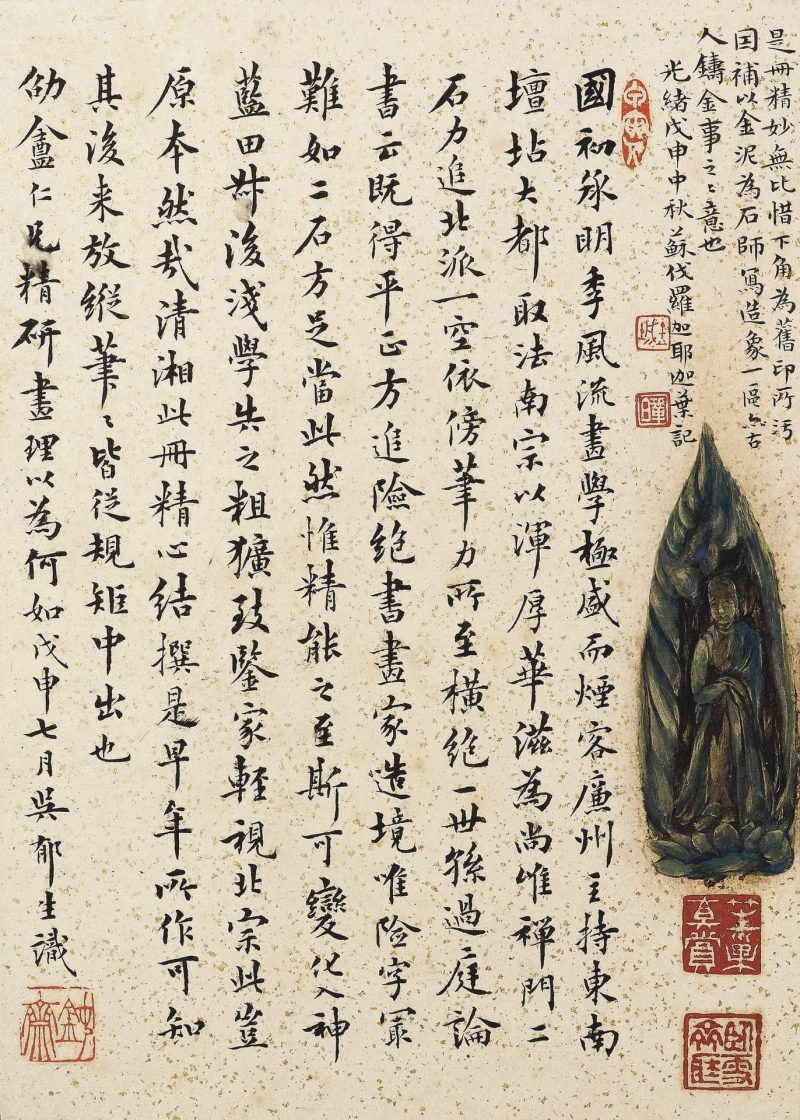 是冊精妙無比惜下角為舊印所污
囙補以金泥為石師寫造象一區亦古
人鑄金事之〻意也
光緒戊申中秋蘇伐羅加耶迦葉記
國初承明季風流畫學極盛而煙客廉州主持東南
壇坫大都取法南宗以渾厚華滋為尚惟禪門二
石力進北派一空依傍筆力所至橫絕一世孫過庭論
書云既得平正方進險絕書畫家造境唯險字最
難如二石方足當此然惟精能之至斯可變化入神
藍田叔後淺學失之粗獷致鑒家輕視北宗此豈
原本然哉清湘此冊精心結撰是早年所作可知
其後來放縱筆〻皆從規矩中出也
劬盦仁兄精研畫理以為何如戊申七月吳郁生識
鈍齋